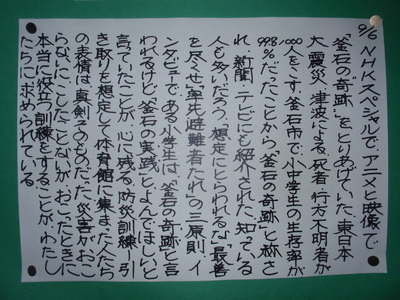 9/6 NHKスペシャルで、アニメと映像で、
釜石の“奇跡”をとりあげていた。東日本
大震災・津波による死者・行方不明者が
1000人をこす釜石市で、小中学生の生存率が
99.8%だったことから、“釜石の奇跡”と称さ
れ、新聞・テレビにも紹介された。知っている
人も多いだろう。“想定にとらわれるな”“最善
を尽せ”“率先避難者たれ”の三原則。イ
ンタビューである小学生は、“釜石の奇跡”と言
われるけど、“釜石の実践”とよんでほしいと
言っていたことが、心に残る。防災訓練―引
き取りを想定して体育館に集まった人たち
の表情は真剣そのものだった。災害がおこ
らないにこしたことないが、おこったときに
本当に役立つ訓練をすることが、わたし
たちに求められている。